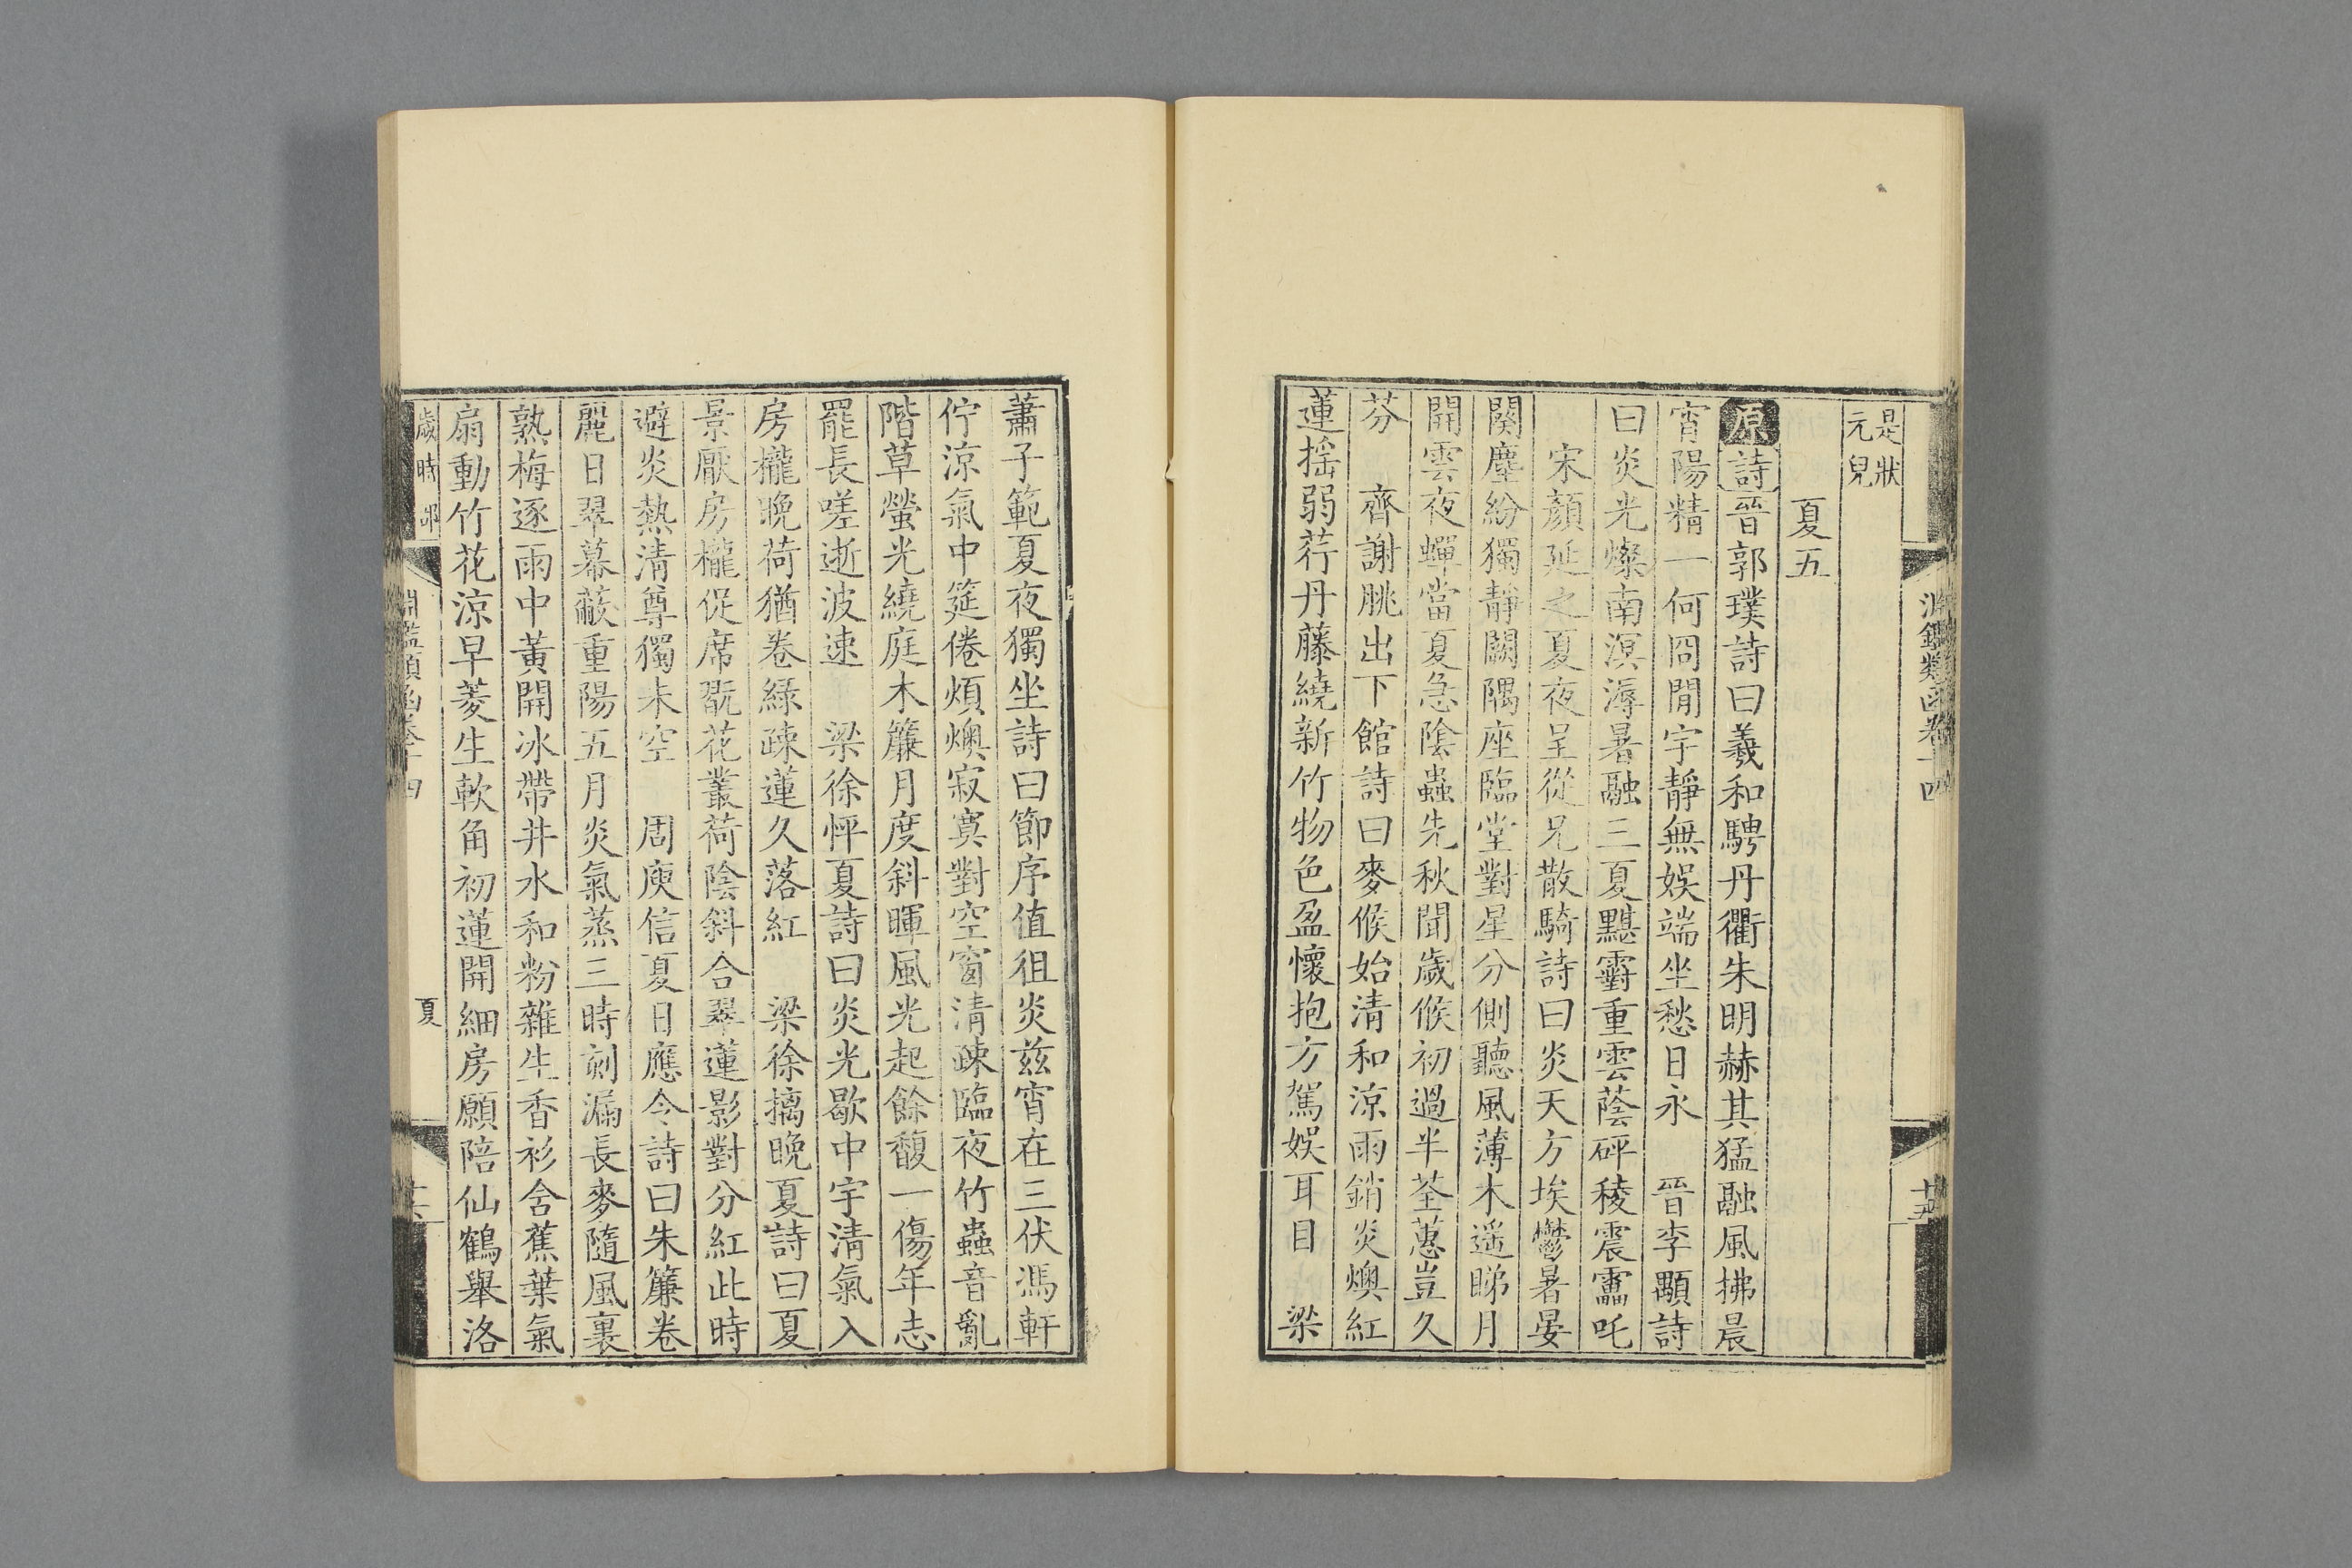 淵鑑類函卷十四
十五
是狀
元兒
夏五
原詩晉郭璞詩曰羲和騁丹衢朱明赫其猛融風拂晨
宵陽精一何冏閒宇靜無娛端坐愁日永　晉李顒詩
曰炎光燦南溟溽暑融三夏黮霨重雲蔭砰稜震靁吒
宋顏延之夏夜呈從兄散騎詩曰炎天方埃鬱暑晏
闋塵紛獨靜闕隅座臨堂對星分側聽風薄木遥睇月
開雲夜蟬當夏急陰蟲先秋聞歲候初過半荃蕙豈久
芬　齊謝朓出下館詩曰麥候始清和涼雨銷炎燠紅
蓮摇弱荇丹藤繞新竹物色盈懷抱方駕娛耳目　梁
蕭子範夏夜獨坐詩曰節序值徂炎兹宵在三伏馮軒
佇涼氣中筵倦煩燠寂寞對空窗清疎臨夜竹蟲音亂
階草螢光繞庭木簾月度斜暉風光起餘馥一傷年志
罷長嗟逝波速　梁徐怦夏詩曰炎光歇中宇清氣入
房櫳晚荷猶卷緑疎蓮久落紅　梁徐摛晚夏詩曰夏
景厭房櫳促席翫花叢荷陰斜合翠蓮影對分紅此時
避炎熱清尊獨未空　周庾信夏日應令詩曰朱簾卷
麗日翠幕蔽重陽五月炎氣蒸三時刻漏長麥隨風裏
熟梅逐雨中黃開冰帶井水和粉雜生香衫含蕉葉氣
扇動竹花涼早菱生軟角初蓮開細房願陪仙鶴舉洛
歲時部
淵鑑類函卷十四
夏